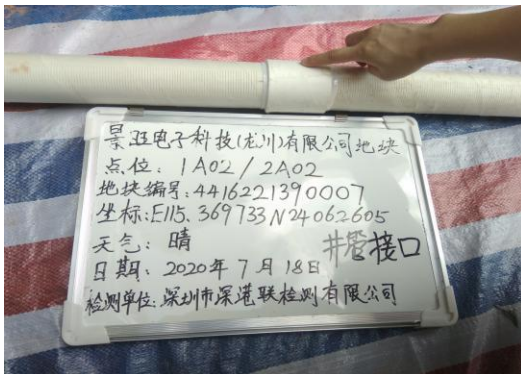 景旺电子科技(龙川)有限公司地块
点位：1A02/2A02
地块编号：4416221390007
坐标：E115.369733 N24062605
天气：晴
井管接口
日期：2020年7月18日
检测单位：深圳市深港联检测有限公司